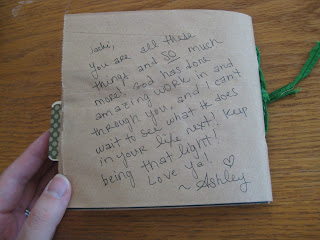 Jacki,
you are all these
things and SO much
more! God has done
amazing work in and
through you, and I can't
wait to see what He does
in your life next! Keep
being that light!
Love ya!
~ Ashley